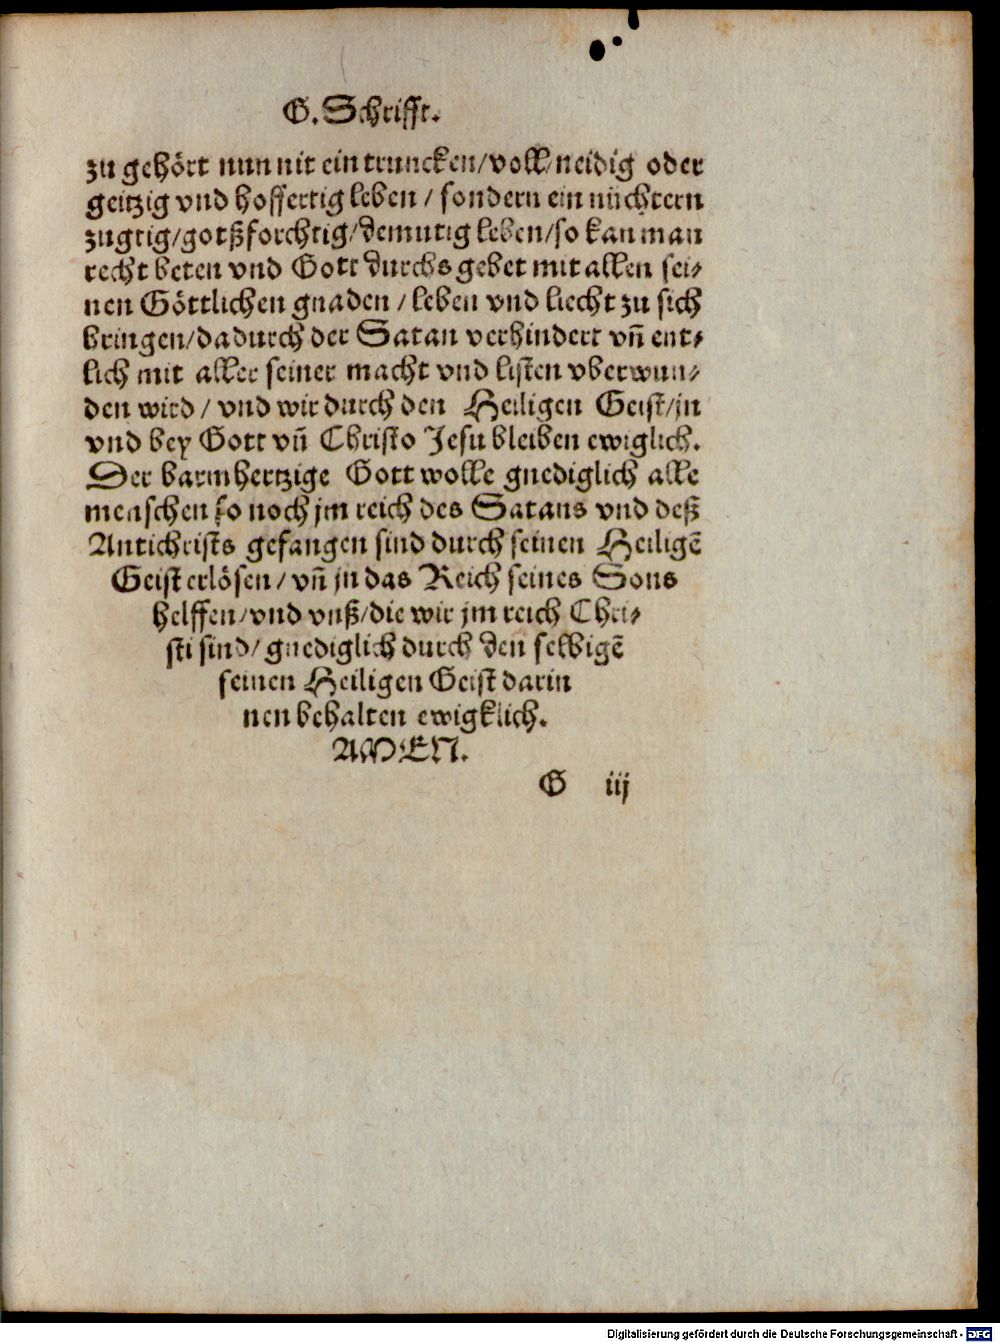 G. Schrifft.
zu gehört nun nit ein truncken/voll/neidig oder
geitzig vnd hoffertig leben / sondern ein nüchtern
zugtig/gotßforchtig/demutig leben/so kan man
recht beten vnd Gott durchs gebet mit allen sei⸗
nen Göttlichen gnaden / leben vnd liecht zu sich
bringen/dadurch der Satan verhindert vñ ent⸗
lich mit aller seiner macht vnd listen vberwun⸗
den wird / vnd wir durch den Heiligen Geist/in
vnd bey Gott vñ Christo Jesu bleiben ewiglich.
Der barmhertzige Gott wolle gnediglich alle
menschen so noch jm reich des Satans vnd deß
Antichrists gefangen sind durch seinen Heiligē
Geist erlösen / vñ jn das Reich seines Sons
helffen/vnd vnß/die wir jm reich Chri⸗
sti sind/ gnediglich durch den selbigē
seinen Heiligen Geist darin
nen behalten ewigklich.
AMEN.
G iij
Digitalisierung gefördert durch die Deutsche Forschungsgemeinschaft - DFG